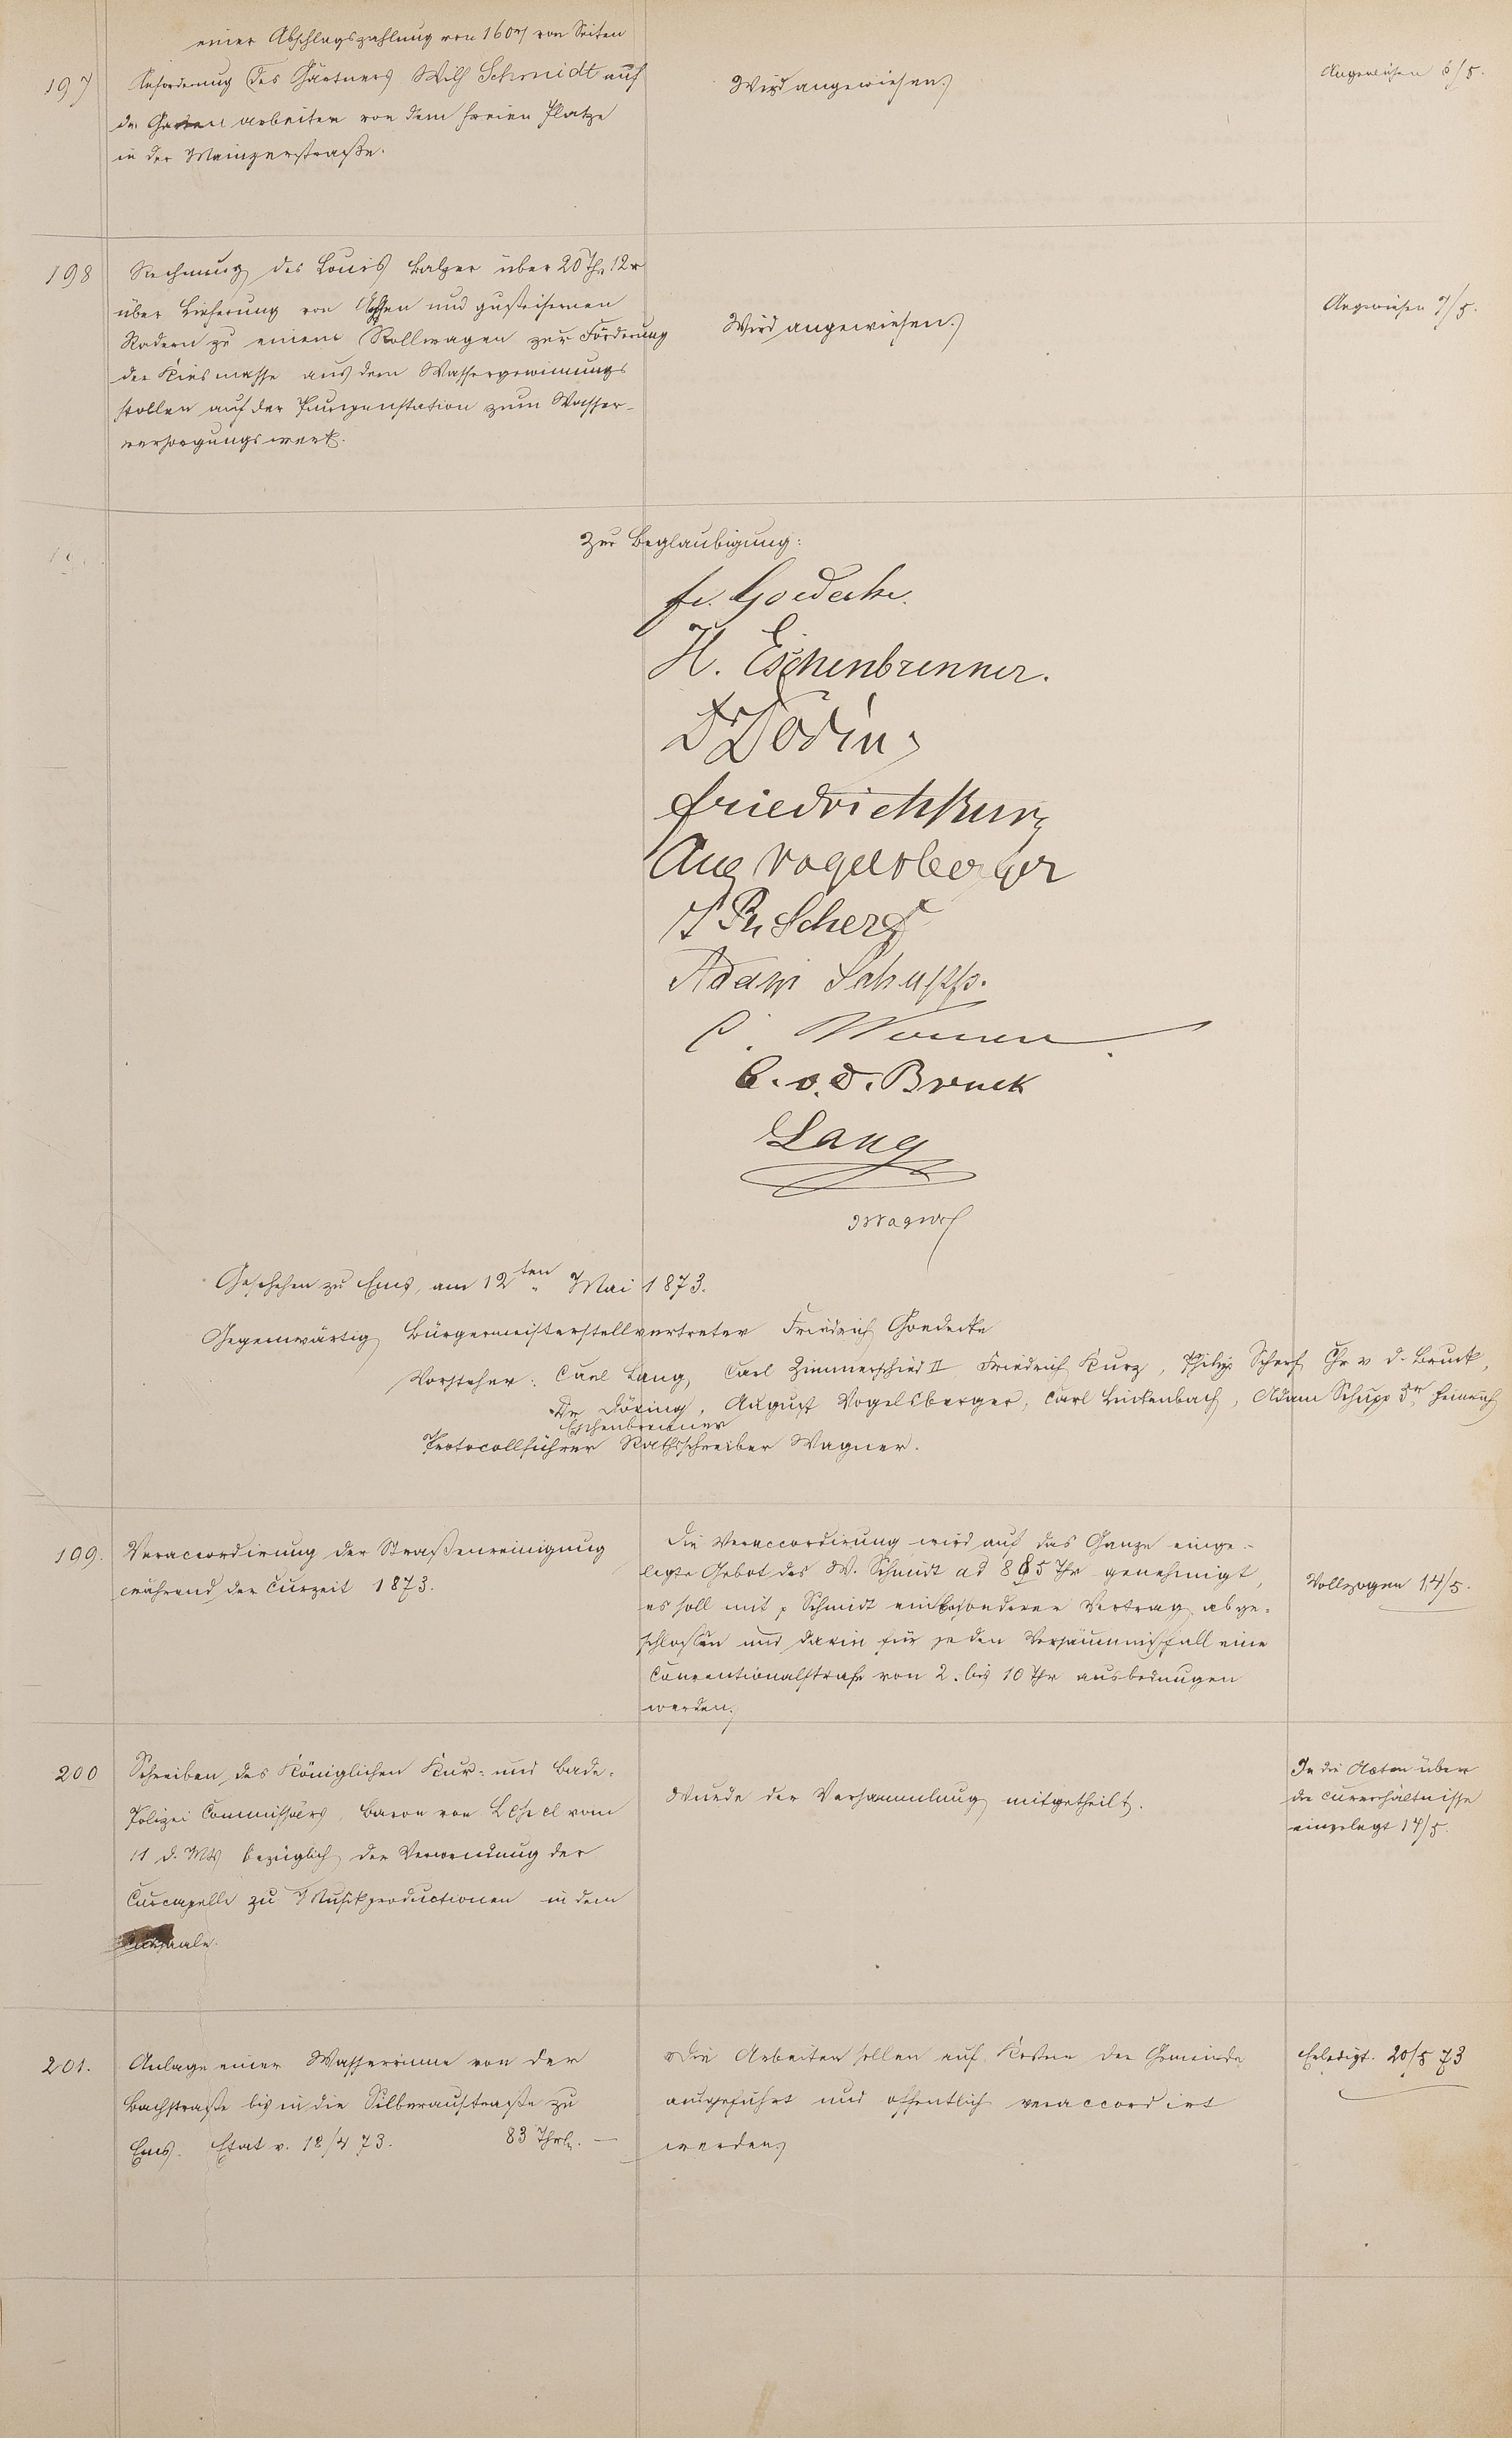 einer Abschlagszahlung von 160 rf von Seiten
197 Anforderung des Gärtners Wilh Schmidt auf
die Gartenarbeiten von dem freien Platze
in der Mainzerstraße.
Wird angewiesen.
Angewiesen 6/5.
198 Rechnung des Louis Balzer über 20 Thr 12
über Lieferung von Achsen und gußeisernen
Rädern zu einem Rollwagen zur Förderung
der Kiesmasse aus dem Wassergewinnungs
stollen auf der Pumpenstation zum Wasser-
versorgungswerk.
Wird angewiesen.
Angewiesen 7/5.
Zur Beglaubigung:
Fr. Goedecke.
H. Eschenbrenner.
Dr Döring
Friedrich Kurz
Aug Vogelsberger
Ph Scherf
Adam Schupp.
C. v. d. Bruck
Lang
Wagner
Geschehen zu Ems, am 12ten Mai 1873.
Gegenwärtig Bürgermeisterstellvertreter Friedrich Goedecke
Vorsteher: Carl Lang, Carl Zimmerschied II Friedrich Kurz, Philipp Scherf Chr v d. Bruck,
Dr Döring, August Vogelsberger, Carl Linkenbach, Adam Schupp 3r, Heinrich
Eschenbrenner
Protocollführer Rathsschreiber Wagner.
199. Veraccordirung der Straßenreinigung
während der Curzeit 1873.
Die Veraccordirung wird auf das Ganze einge-
legte Gebot des W. Schmidt ad 885 Thr genehmigt,
es soll mit p Schmidt ein besonderer Vertrag abge-
schlossen und darin für jeden Versäumnißfall eine
Conventionalstrafe von 2. bis 10 Thr ausbedungen
werden.
Vollzogen 14/5.
200 Schreiben des Königlichen Kur- und Bade-
Polizei Commissärs, Baron von vom
11 d. Mts bezüglich der Verwendung der
Curcapelle zu Musikproductionen in dem
Cursaale.
Wurde der Versammlung mitgetheilt.
In die Acten über
die Curverhältnisse
eingelegt 14/5.
201. Anlage einer Wasserrinne von der
Bachstraße bis in die Silberaustraße zu
Ems. Etat v. 18/4 73. 83 Thlr. —
Die Arbeiten sollen auf Kosten der Gemeinde
ausgeführt und öffentlich veraccordirt
werden
Erledigt. 20/5 73